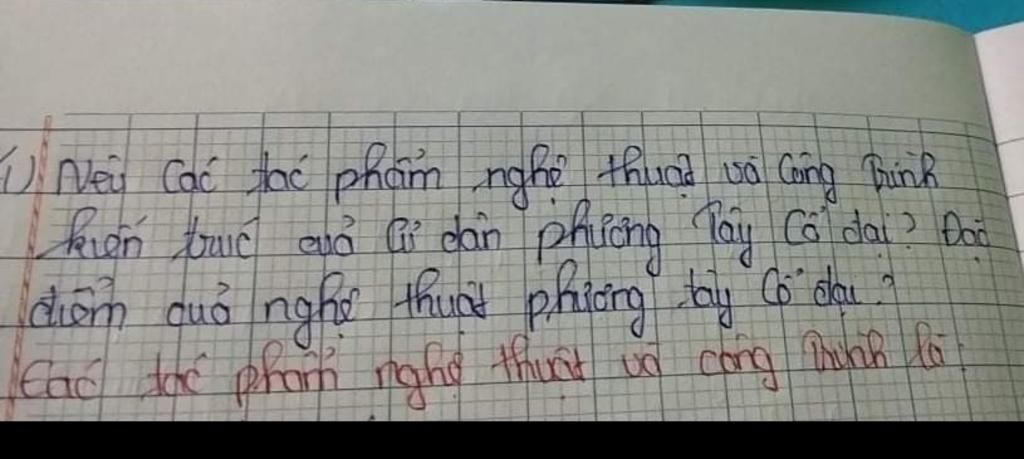 1) Nêu các tác phẩm nghệ thuật và công trình
kiến trúc của cư dân phương Tây cổ đại? Đặc
điểm của nghệ thuật phương tây cổ đại?
Các tác phẩm nghệ thuật và công trình là